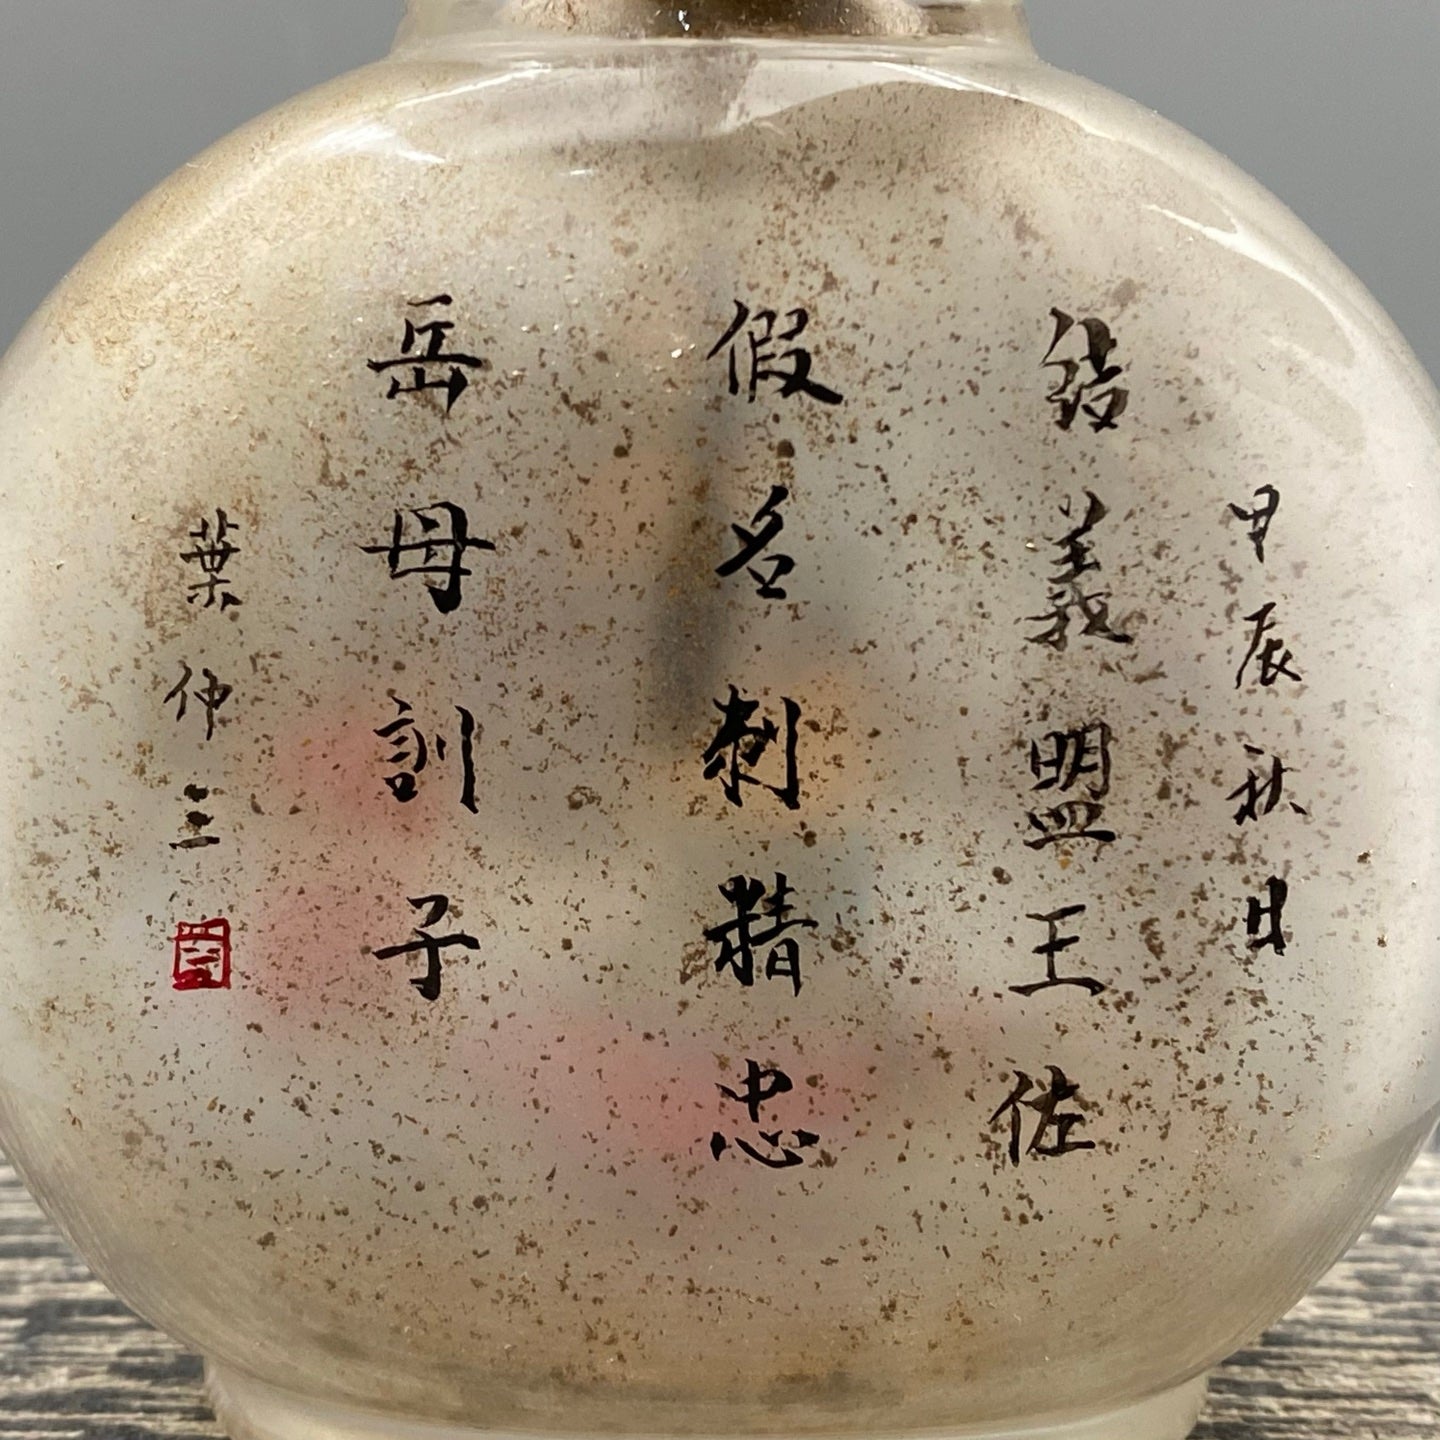 甲辰秋日
結義盟王佐
假名刺精忠
岳母訓子
葉仲三